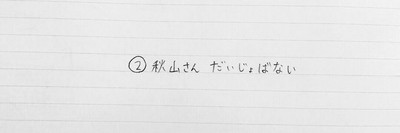 ② 秋山さん だいじょばない